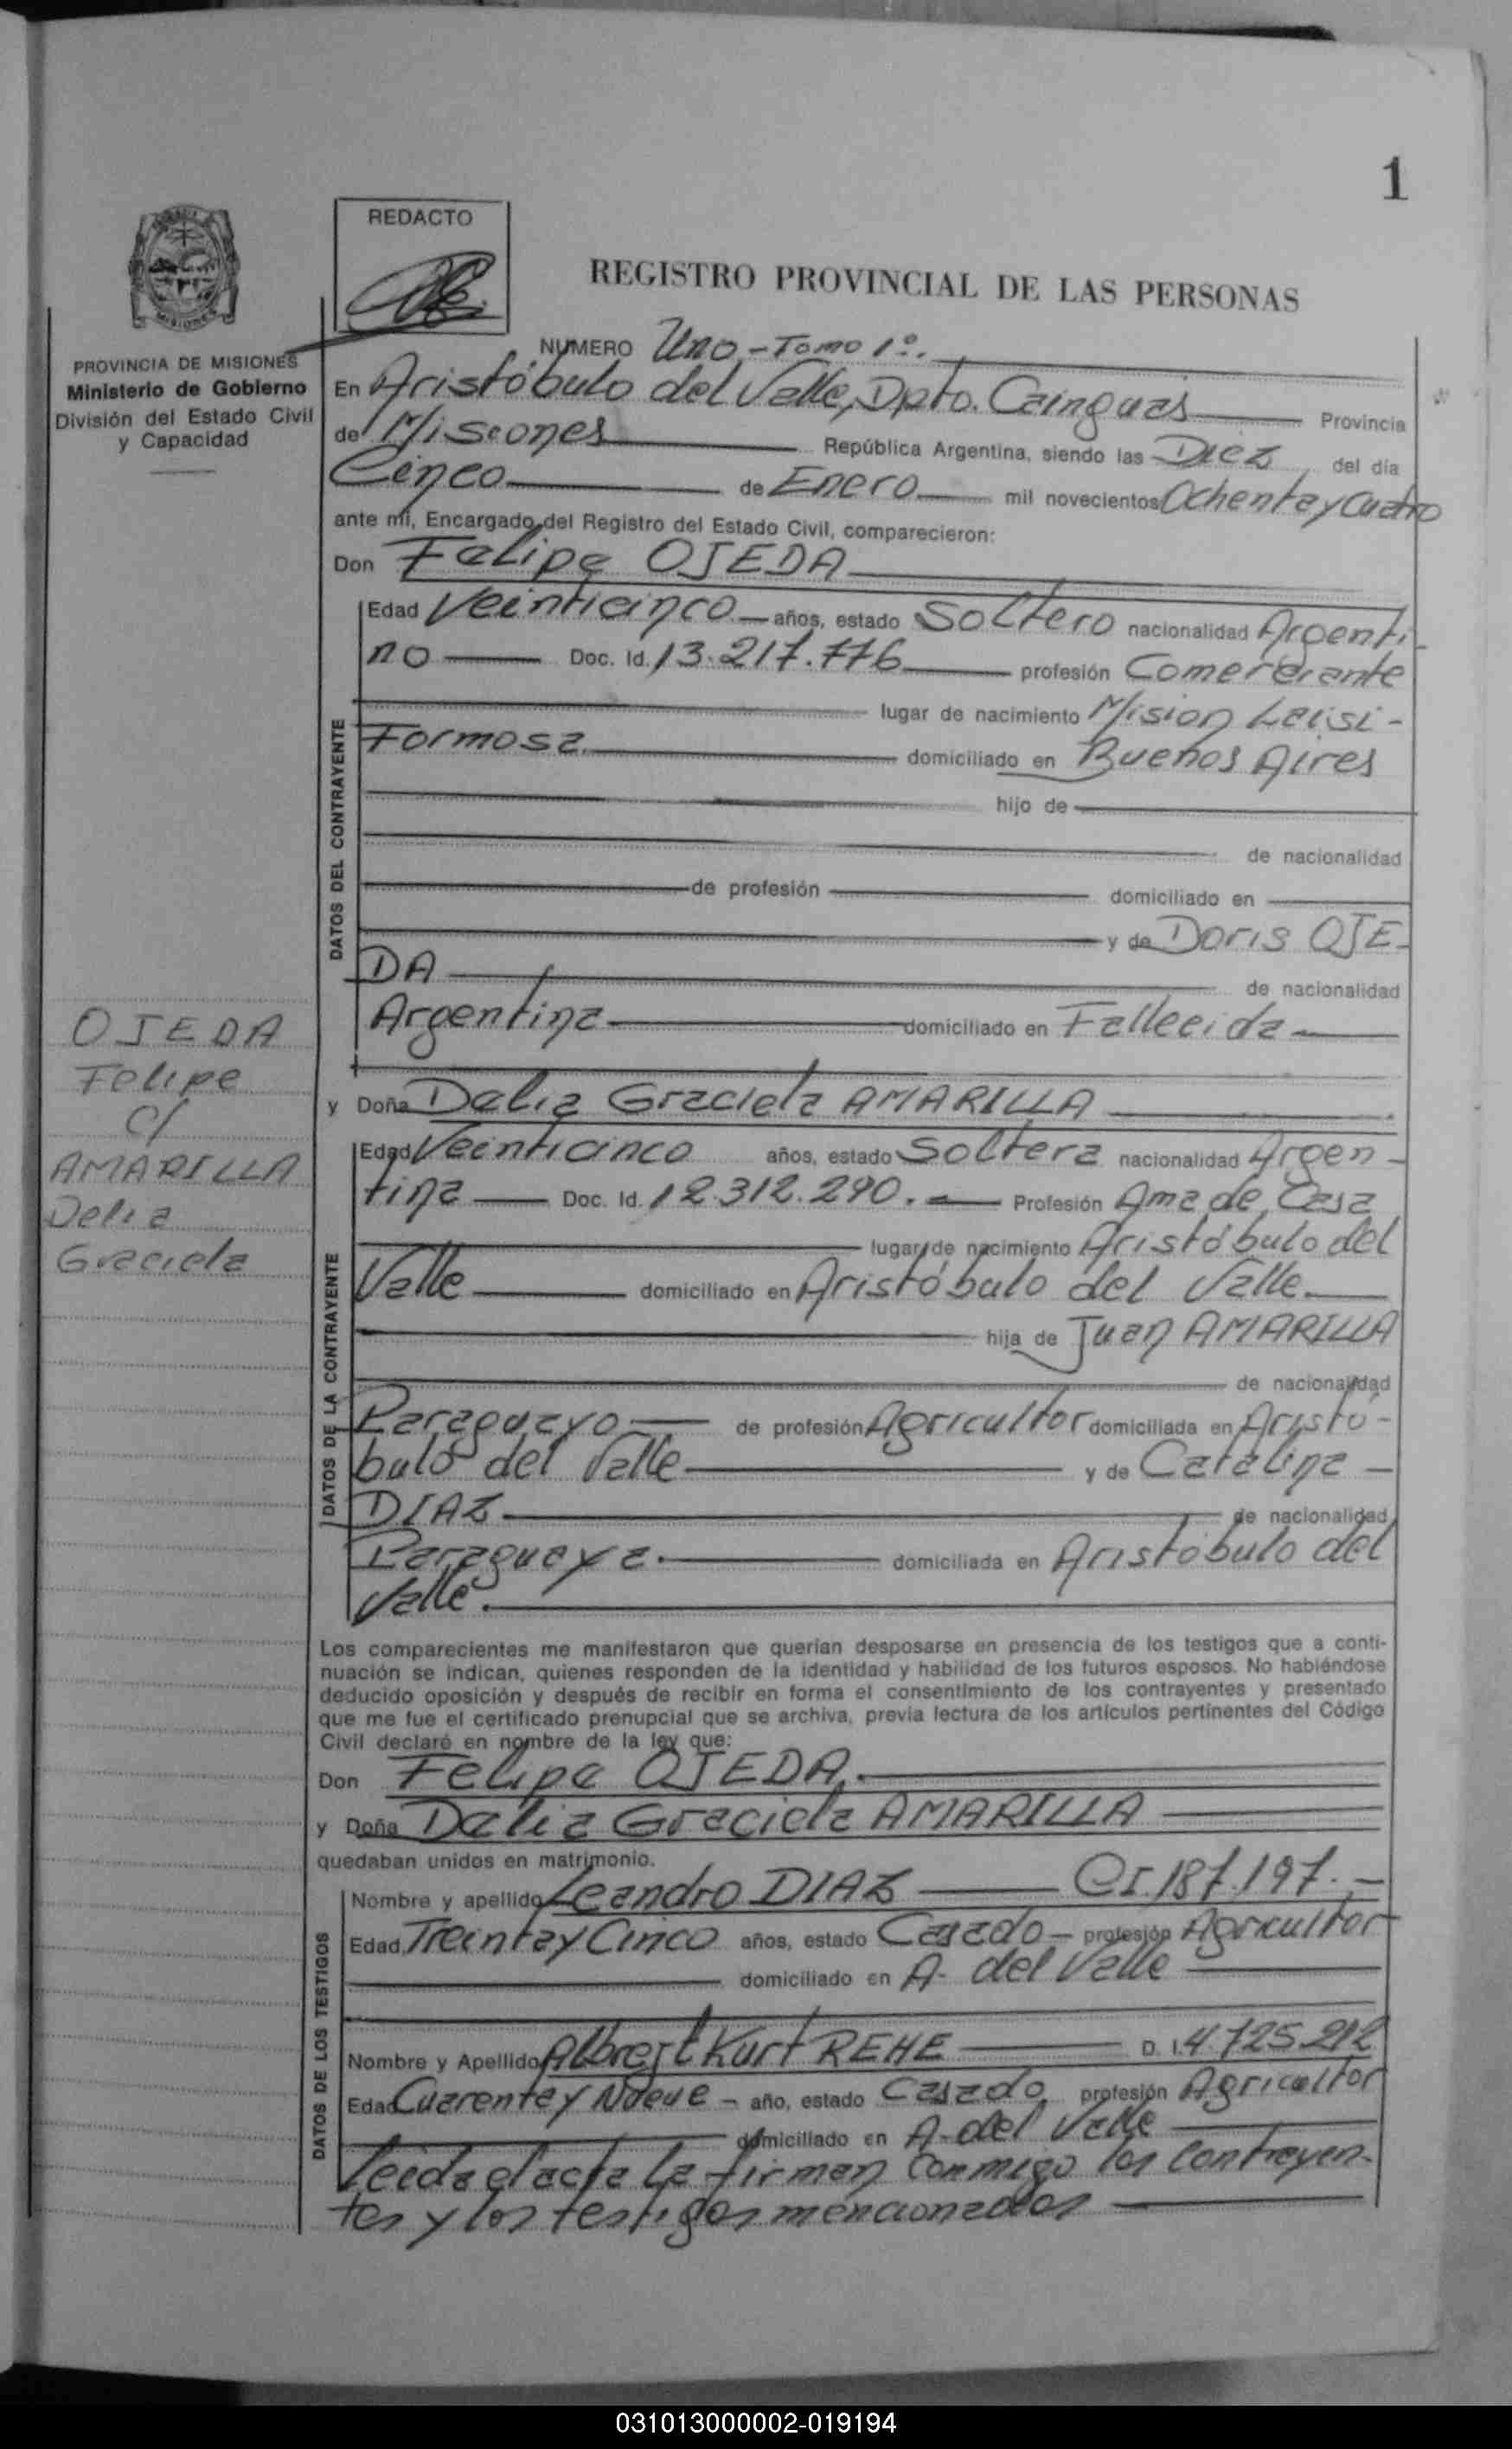 1
REDACTO
REGISTRO PROVINCIAL DE LAS PERSONAS
PROVINCIA DE MISIONES
Ministerio de Gobierno
División del Estado Civil
y Capacidad
NUMERO Uno - Tomo 1º.
En Aristóbulo del Valle, Dpto. Cainguas Provincia
de Misiones República Argentina, siendo las Diez del día
Cinco de Enero mil novecientos Ochenta y Cuatro
ante mí, Encargado del Registro del Estado Civil, comparecieron:
Don Felipe OJEDA
DATOS DEL CONTRAYENTE
Edad Veinticinco años, estado Soltero nacionalidad Argenti-
no Doc. Id. 13.217.776 profesión Comerciante
lugar de nacimiento Mision Laisi-
Formosa domiciliado en Buenos Aires
hijo de
de nacionalidad
de profesión domiciliado en
y de Doris OJE-
DA de nacionalidad
Argentina domiciliado en Fallecida
OJEDA
Felipe
c/
AMARILLA
Delia
Graciela
y Doña Delia Graciela AMARILLA
DATOS DE LA CONTRAYENTE
Edad Veinticinco años, estado Soltera nacionalidad Argen-
tina Doc. Id. 12.312.290. Profesión Ama de Casa
lugar de nacimiento Aristóbulo del
Valle domiciliado en Aristóbulo del Valle
hija de Juan AMARILLA
de nacionalidad
Paraguayo de profesión Agricultor domiciliada en Aristó-
bulo del Valle y de Catalina
DIAZ de nacionalidad
Paraguaya. domiciliada en Aristóbulo del
Valle.
Los comparecientes me manifestaron que querían desposarse en presencia de los testigos que a conti-
nuación se indican, quienes responden de la identidad y habilidad de los futuros esposos. No habiéndose
deducido oposición y después de recibir en forma el consentimiento de los contrayentes y presentado
que me fue el certificado prenupcial que se archiva, previa lectura de los artículos pertinentes del Código
Civil declaré en nombre de la ley que:
Don Felipe OJEDA.
y Doña Delia Graciela AMARILLA
quedaban unidos en matrimonio.
DATOS DE LOS TESTIGOS
Nombre y apellido Leandro DIAZ CI. 187.197.-
Edad Treinta y Cinco años, estado Casado profesión Agricultor
domiciliado en A. del Valle
Nombre y Apellido Albrejt Kurt REHE D. I. 4.725.212
Edad Cuarenta y Nueve año, estado Casado profesión Agricultor
domiciliado en A. del Valle
Leida el acta la firman conmigo los contrayen-
tes y los testigos mencionados
031013000002-019194